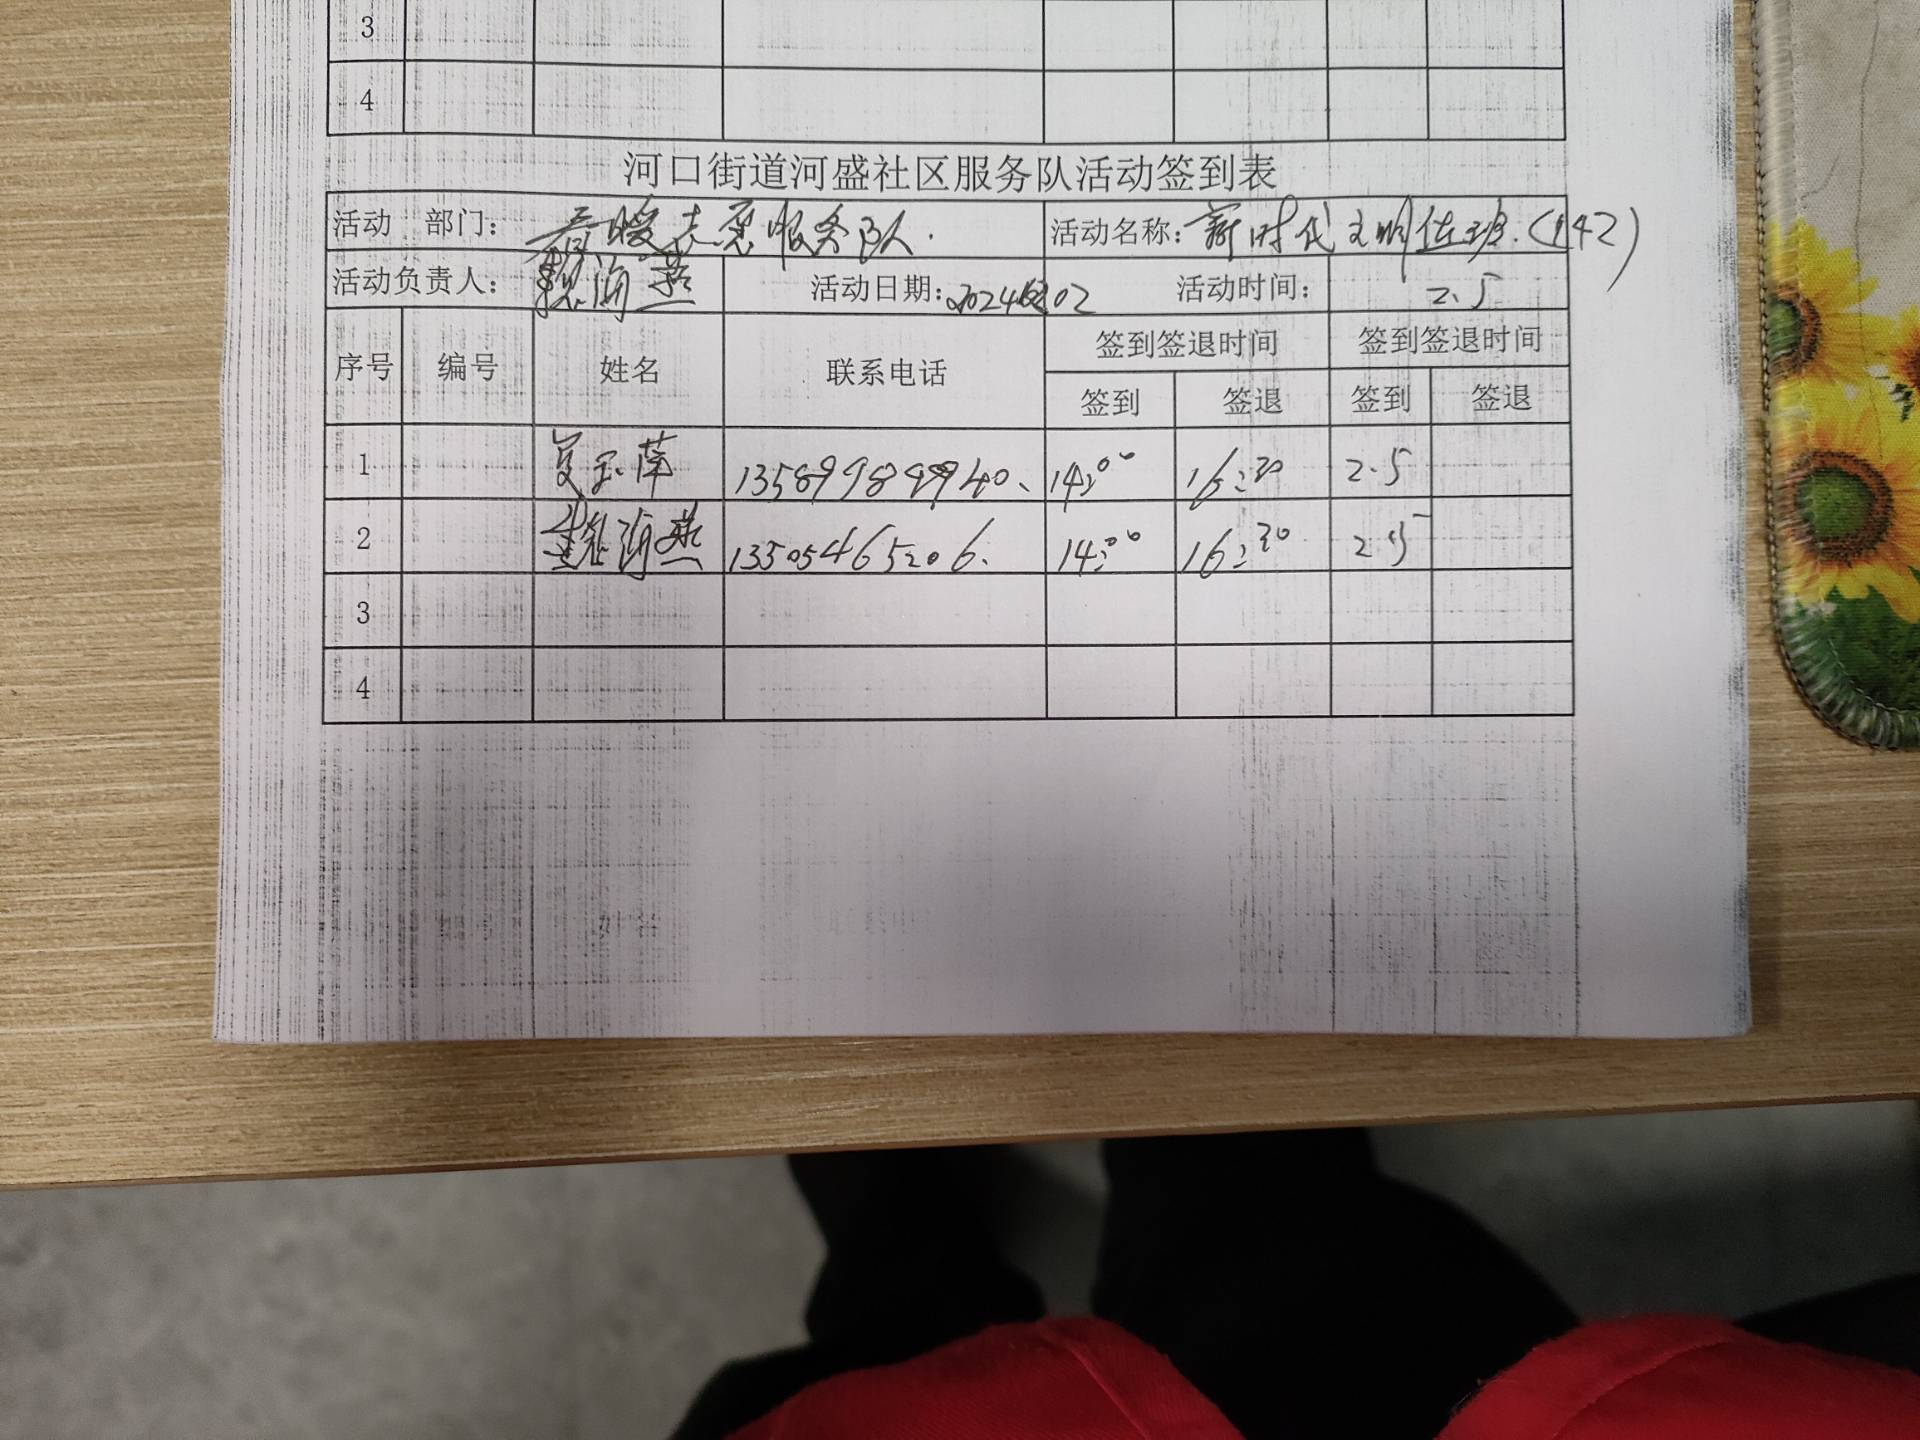 3
4
河口街道河盛社区服务队活动签到表
活动 部门： 春暖志愿服务队. 活动名称：新时代文明 (142)
活动负责人： 魏海燕 活动日期： 活动时间： 2.5
序号 编号 姓名 联系电话 签到签退时间 签到签退时间
签到 签退 签到 签退
1 14:00 16:30 2.5
2 魏海燕 13505465206. 14:00 16:30 2.5
3
4